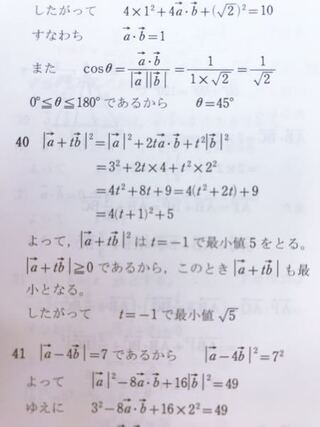 したがって 4×1²+4a⃗·b⃗+(√2)²=10
すなわち a⃗·b⃗=1
また cosθ=a⃗·b⃗/|a⃗||b⃗|=1/1×√2=1/√2
0°≦θ≦180°であるから θ=45°
40 |a⃗+tb⃗|²=|a⃗|²+2ta⃗·b⃗+t²|b⃗|²
=3²+2t×4+t²×2²
=4t²+8t+9=4(t²+2t)+9
=4(t+1)²+5
よって，|a⃗+tb⃗|²は t=−1 で最小値 5 をとる。
|a⃗+tb⃗|≧0 であるから，このとき |a⃗+tb⃗| も最
小となる。
したがって t=−1 で最小値 √5
41 |a⃗−4b⃗|=7 であるから |a⃗−4b⃗|²=7²
よって |a⃗|²−8a⃗·b⃗+16|b⃗|²=49
ゆえに 3²−8a⃗·b⃗+16×2²=49